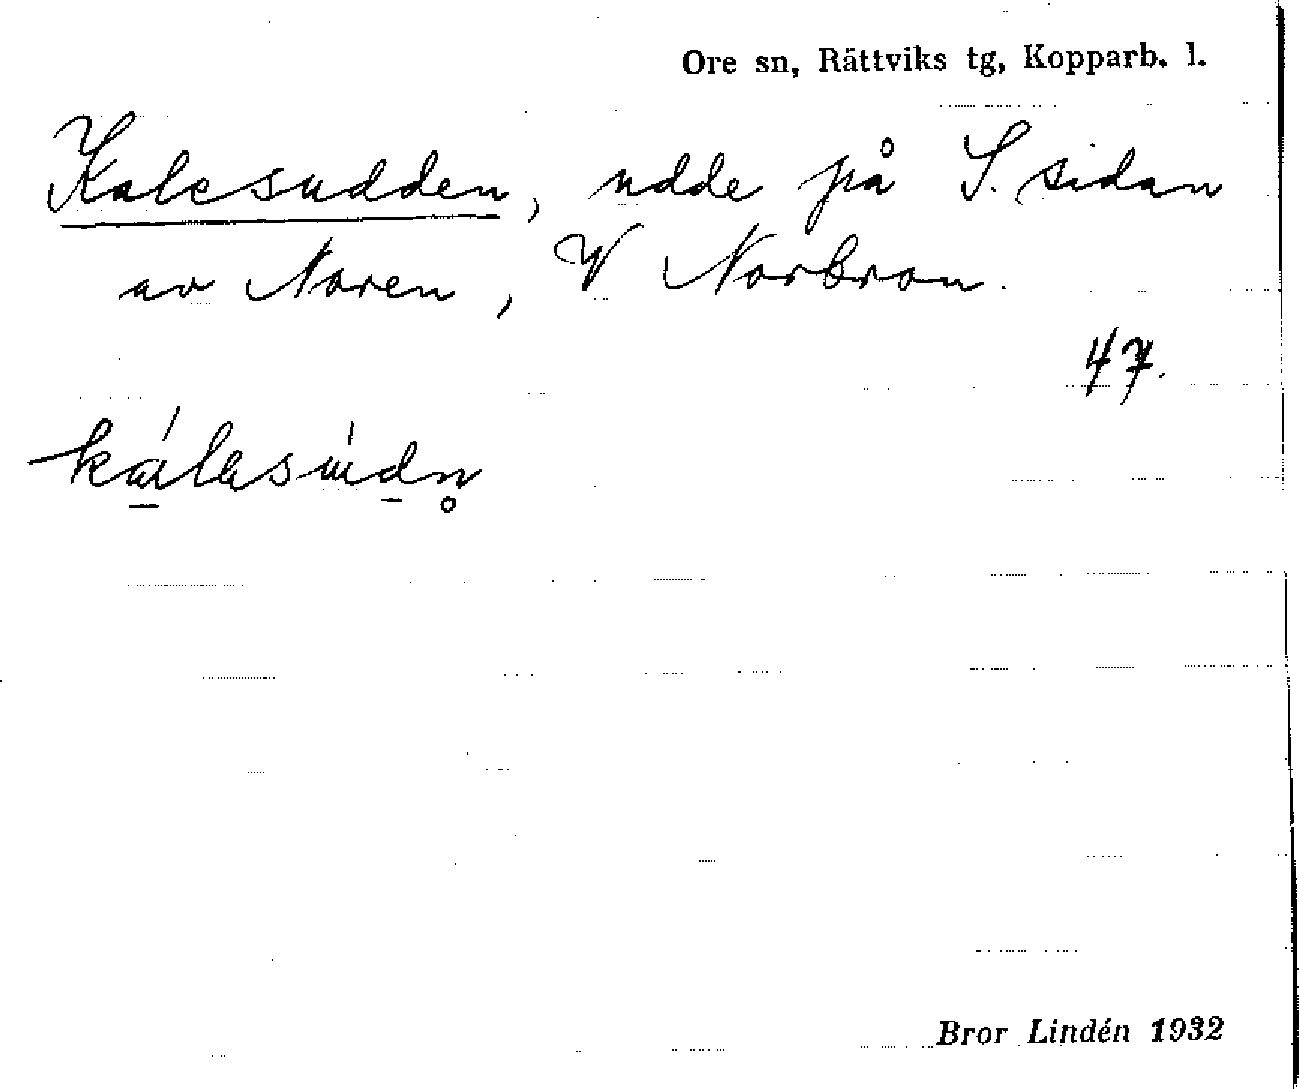 Ore sn, Rättviks tg, Kopparb. l.
Kalesudden, udde på S. sidan
av Noren, V Norbron.
47.
kálasúdn̥
Bror Lindén 1932